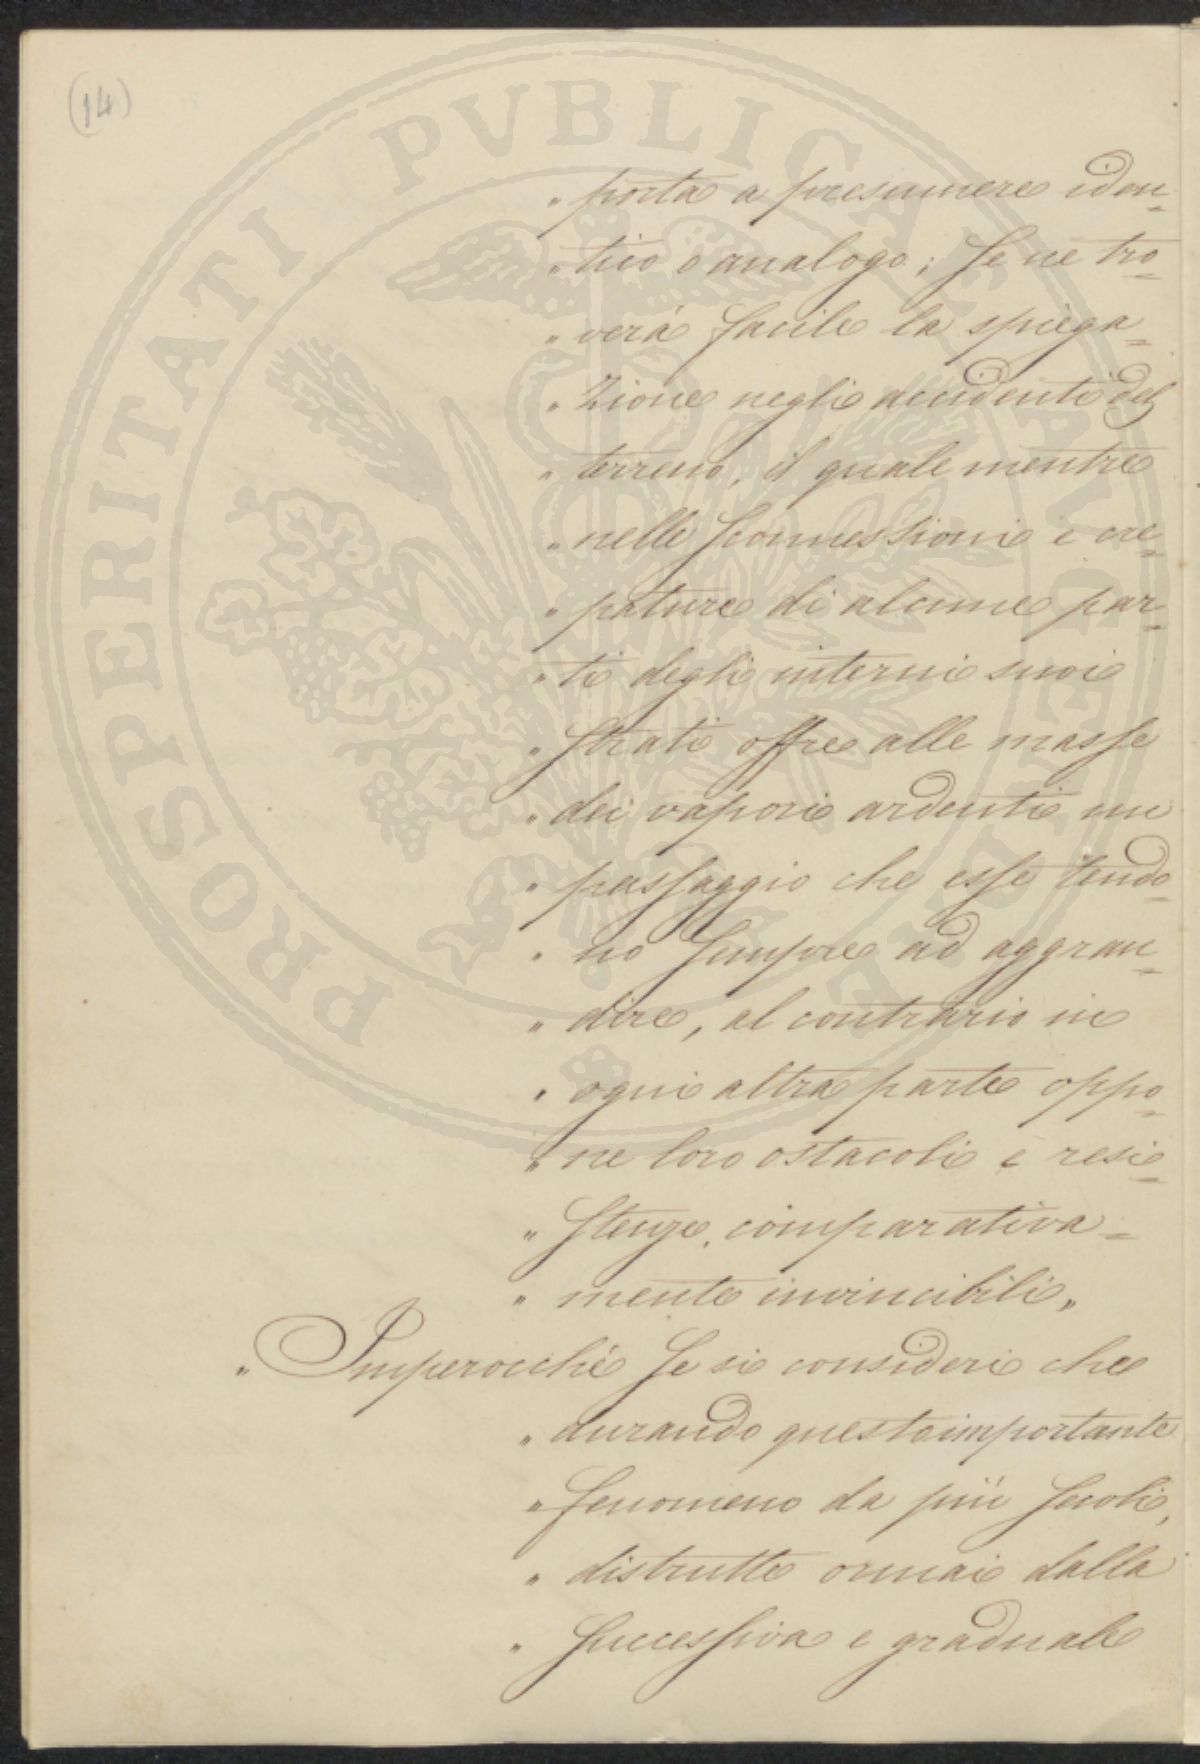 (14)
„ porta a presumere iden=
„ tico o analogo; se ne tro=
„ verá facile la spiega=
„ zione negli accidenti del
„ terreno, il quale mentre
„ nelle sconnessioni e cre=
„ pature di alcune par=
„ ti degli interni suoi
„ strati offre alle masse
„ dei vapori ardenti un
„ passaggio che esse tendo
„ no sempre ad aggran=
„ dire, al contrario in
„ ogni altra parte oppo=
„ ne loro ostacoli e resi=
„ stenze, comparativa=
„ mente invincibili„
„ Imperocché se si consideri che
„ durando questo importante
„ fenomeno da più secoli,
„ distrutte ormai dalla
„ successiva e graduale
PROSPERITATI PVBLICAE AVGENDAE